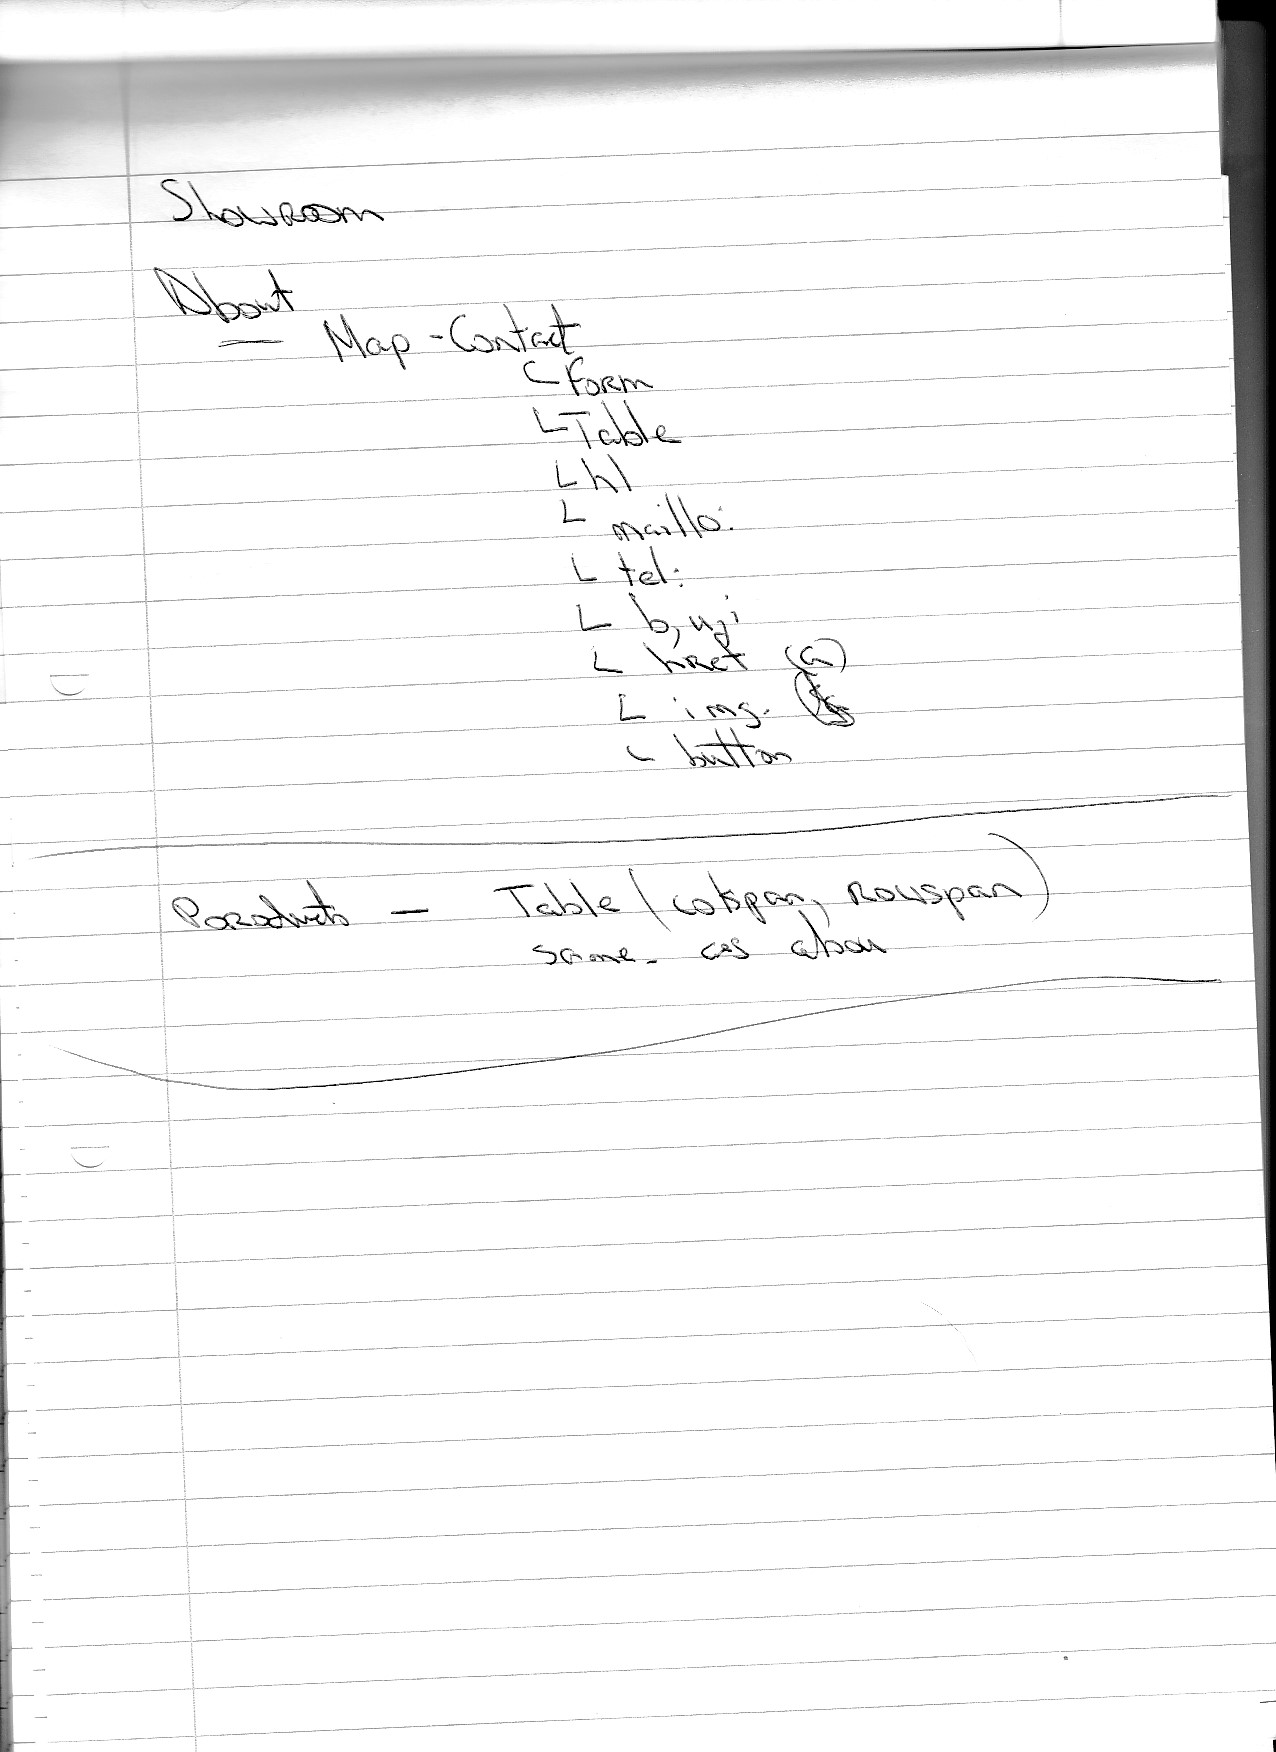 Showroom
About
Map - Contact
Form
Table
h1
mailto:
tel:
b, u, i
href (a)
img.
button
Products - Table (colspan, rowspan)
same as abou